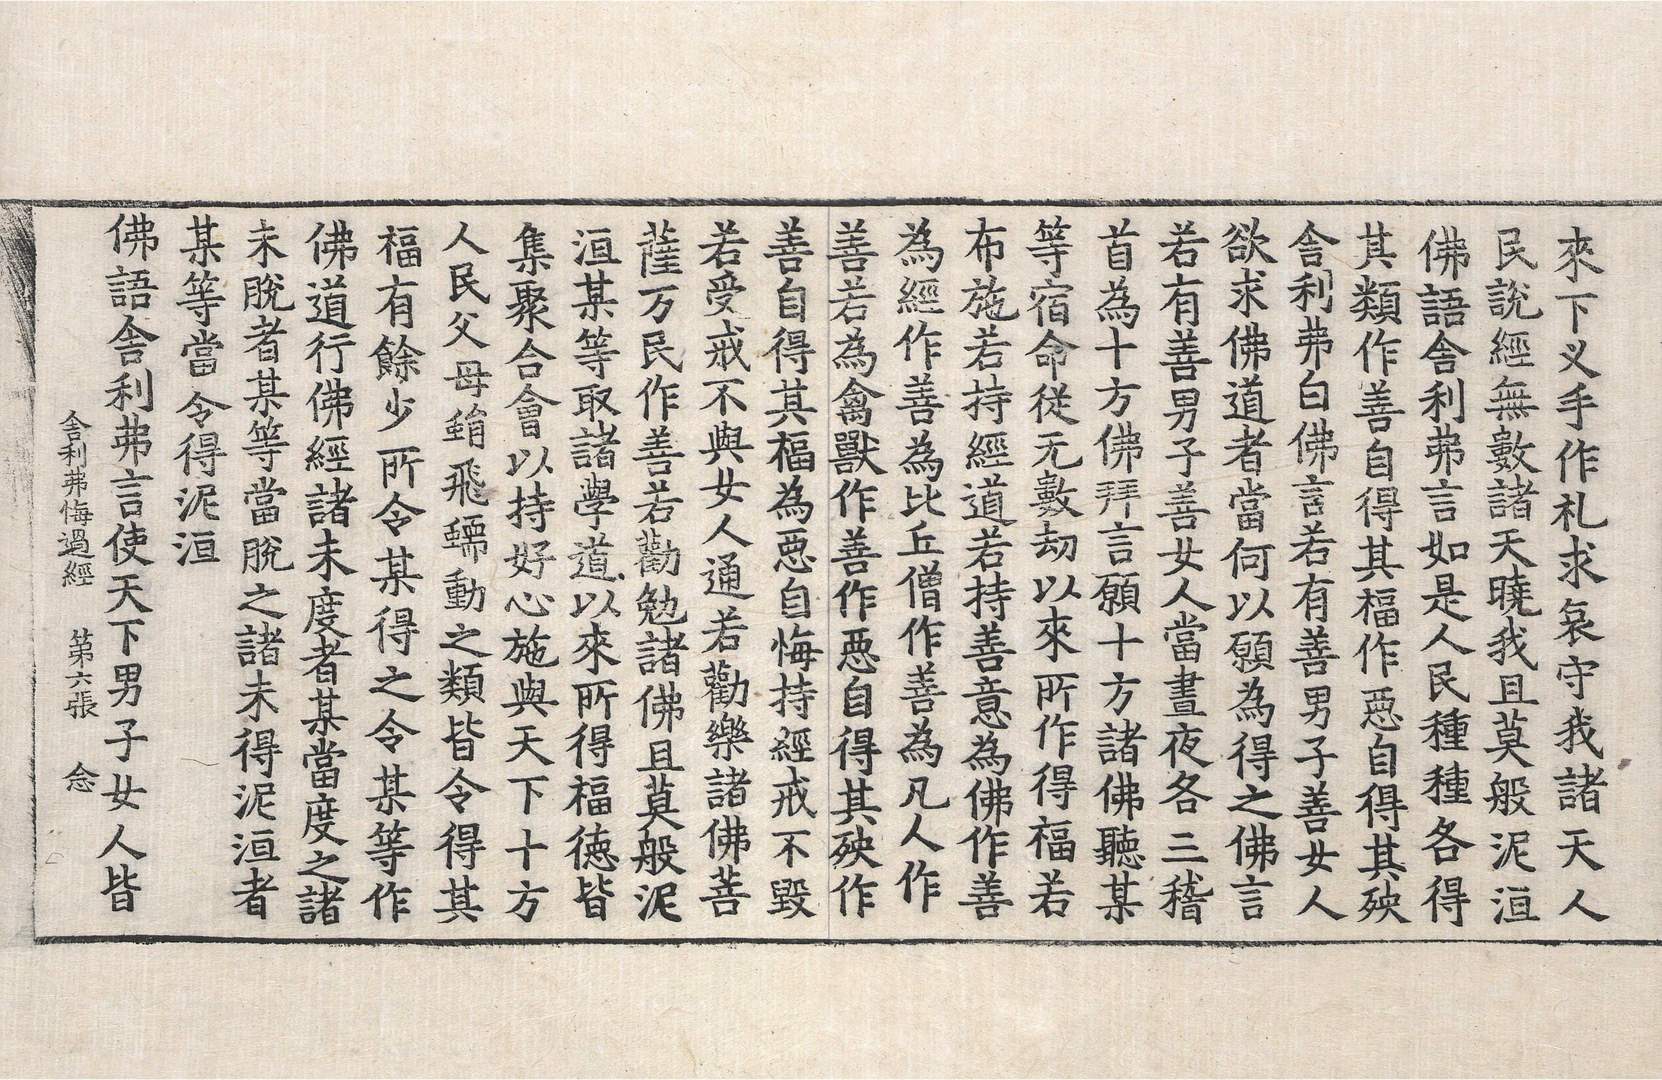 來下叉手作礼求哀守我諸天人
民說經無數諸天曉我且莫般泥洹
佛語舍利弗言如是人民種種各得
其類作善自得其福作惡自得其殃
舍利弗白佛言若有善男子善女人
欲求佛道者當何以願為得之佛言
若有善男子善女人當晝夜各三稽
首為十方佛拜言願十方諸佛聽某
等宿命從无數劫以來所作得福若
布施若持經道若持善意為佛作善
為經作善為比丘僧作善為凡人作
善若為禽獸作善作惡自得其殃作
善自得其福為惡自悔持經戒不毀
若受戒不與女人通若勸樂諸佛菩
薩万民作善若勸勉諸佛且莫般泥
洹某等取諸學道以來所得福德皆
集聚合會以持好心施與天下十方
人民父母蜎飛蠕動之類皆令得其
福有餘少所令某得之令某等作
佛道行佛經諸未度者某當度之諸
未脫者某等當脫之諸未得泥洹者
某等當令得泥洹
佛語舍利弗言使天下男子女人皆
舍利弗悔過經 第六張 念